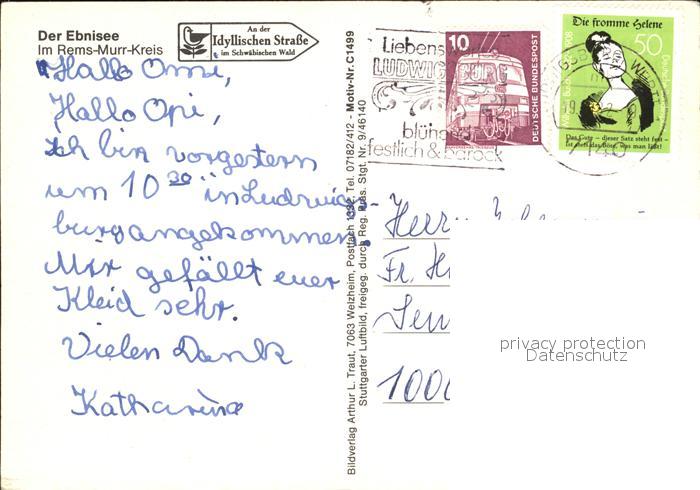 Der Ebnisee
Im Rems-Murr-Kreis
An der
Idyllischen Straße
im Schwäbischen Wald
Hallo Omi,
Hallo Opi,
Ich bin vorgestern
um 10 30 in Ludwigs
burg angekommen.
Mir gefällt euer
Kleid sehr.
Vielen Dank
Katharina
Bildverlag Arthur L. Traut, 7063 Welzheim, Postfach 1332, Tel. 07182/412 - Motiv-Nr. C1499
Stuttgarter Luftbild, freigeg. durch Reg. Präs. Stgt. Nr. 9/46140
Liebens
LUDWIGSBURG
blühend
festlich & barock
10
DEUTSCHE BUNDESPOST
Die fromme Helene
50
Das Gute – dieser Satz steht fest –
Ist stets das Böse, was man läßt!
Herr
Fr. H
1000
privacy protection
Datenschutz